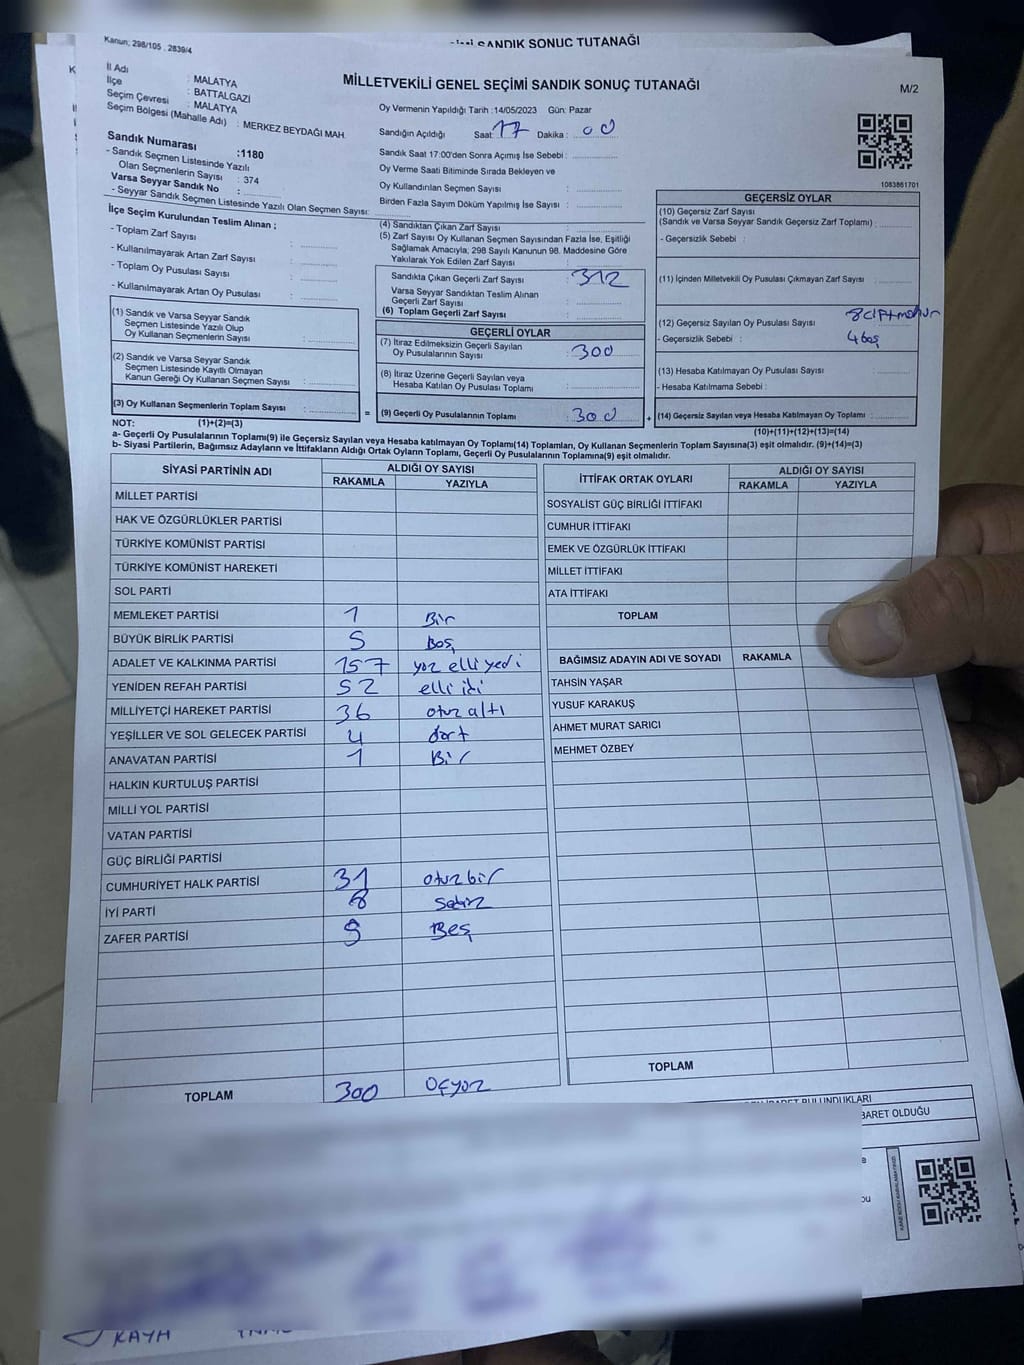 Kanun; 298/105 , 2839/4
SANDIK SONUÇ TUTANAĞI
M/2
MİLLETVEKİLİ GENEL SEÇİMİ SANDIK SONUÇ TUTANAĞI
İl Adı : MALATYA
İlçe : BATTALGAZİ
Seçim Çevresi : MALATYA
Seçim Bölgesi (Mahalle Adı) : MERKEZ BEYDAĞI MAH.
Sandık Numarası :1180
- Sandık Seçmen Listesinde Yazılı
Olan Seçmenlerin Sayısı : 374
Varsa Seyyar Sandık No :
- Seyyar Sandık Seçmen Listesinde Yazılı Olan Seçmen Sayısı:
Oy Vermenin Yapıldığı Tarih :14/05/2023 Gün: Pazar
Sandığın Açıldığı Saat: 17 Dakika : 00
Sandık Saat 17:00'den Sonra Açımış İse Sebebi :
Oy Verme Saati Bitiminde Sırada Bekleyen ve
Oy Kullandırılan Seçmen Sayısı :
Birden Fazla Sayım Döküm Yapılmış İse Sayısı :
1083861701
İlçe Seçim Kurulundan Teslim Alınan ;
- Toplam Zarf Sayısı :
- Kullanılmayarak Artan Zarf Sayısı :
- Toplam Oy Pusulası Sayısı :
- Kullanılmayarak Artan Oy Pusulası :
(1) Sandık ve Varsa Seyyar Sandık
Seçmen Listesinde Yazılı Olup
Oy Kullanan Seçmenlerin Sayısı :
(2) Sandık ve Varsa Seyyar Sandık
Seçmen Listesinde Kayıtlı Olmayan
Kanun Gereği Oy Kullanan Seçmen Sayısı :
(3) Oy Kullanan Seçmenlerin Toplam Sayısı :
(4) Sandıktan Çıkan Zarf Sayısı :
(5) Zarf Sayısı Oy Kullanan Seçmen Sayısından Fazla İse, Eşitliği
Sağlamak Amacıyla, 298 Sayılı Kanunun 98. Maddesine Göre
Yakılarak Yok Edilen Zarf Sayısı :
Sandıkta Çıkan Geçerli Zarf Sayısı : 312
Varsa Seyyar Sandıktan Teslim Alınan
Geçerli Zarf Sayısı :
(6) Toplam Geçerli Zarf Sayısı :
GEÇERLİ OYLAR
(7) İtiraz Edilmeksizin Geçerli Sayılan
Oy Pusulalarının Sayısı : 300
(8) İtiraz Üzerine Geçerli Sayılan veya
Hesaba Katılan Oy Pusulası Toplamı :
= (9) Geçerli Oy Pusulalarının Toplamı : 300 +
GEÇERSİZ OYLAR
(10) Geçersiz Zarf Sayısı
(Sandık ve Varsa Seyyar Sandık Geçersiz Zarf Toplamı) :
- Geçersizlik Sebebi :
(11) İçinden Milletvekili Oy Pusulası Çıkmayan Zarf Sayısı :
(12) Geçersiz Sayılan Oy Pusulası Sayısı : 8 çift mühür
- Geçersizlik Sebebi : 4 boş
(13) Hesaba Katılmayan Oy Pusulası Sayısı :
- Hesaba Katılmama Sebebi :
(14) Geçersiz Sayılan veya Hesaba Katılmayan Oy Toplamı :
NOT: (1)+(2)=(3)
(10)+(11)+(12)+(13)=(14)
a- Geçerli Oy Pusulalarının Toplamı(9) ile Geçersiz Sayılan veya Hesaba katılmayan Oy Toplamı(14) Toplamları, Oy Kullanan Seçmenlerin Toplam Sayısına(3) eşit olmalıdır. (9)+(14)=(3)
b- Siyasi Partilerin, Bağımsız Adayların ve İttifakların Aldığı Ortak Oyların Toplamı, Geçerli Oy Pusulalarının Toplamına(9) eşit olmalıdır.
SİYASİ PARTİNİN ADI ALDIĞI OY SAYISI
RAKAMLA YAZIYLA
MİLLET PARTİSİ
HAK VE ÖZGÜRLÜKLER PARTİSİ
TÜRKİYE KOMÜNİST PARTİSİ
TÜRKİYE KOMÜNİST HAREKETİ
SOL PARTİ
MEMLEKET PARTİSİ 1 Bir
BÜYÜK BİRLİK PARTİSİ 5 Beş
ADALET VE KALKINMA PARTİSİ 157 yüz elli yedi
YENİDEN REFAH PARTİSİ 52 elli iki
MİLLİYETÇİ HAREKET PARTİSİ 36 otuz altı
YEŞİLLER VE SOL GELECEK PARTİSİ 4 dört
ANAVATAN PARTİSİ 1 Bir
HALKIN KURTULUŞ PARTİSİ
MİLLİ YOL PARTİSİ
VATAN PARTİSİ
GÜÇ BİRLİĞİ PARTİSİ
CUMHURİYET HALK PARTİSİ 31 otuz bir
İYİ PARTİ 8 sekiz
ZAFER PARTİSİ 5 Beş
TOPLAM 300 Üçyüz
İTTİFAK ORTAK OYLARI ALDIĞI OY SAYISI
RAKAMLA YAZIYLA
SOSYALİST GÜÇ BİRLİĞİ İTTİFAKI
CUMHUR İTTİFAKI
EMEK VE ÖZGÜRLÜK İTTİFAKI
MİLLET İTTİFAKI
ATA İTTİFAKI
TOPLAM
BAĞIMSIZ ADAYIN ADI VE SOYADI RAKAMLA
TAHSİN YAŞAR
YUSUF KARAKUŞ
AHMET MURAT SARICI
MEHMET ÖZBEY
TOPLAM
BULUNDUKLARI
BARET OLDUĞU
KAYA